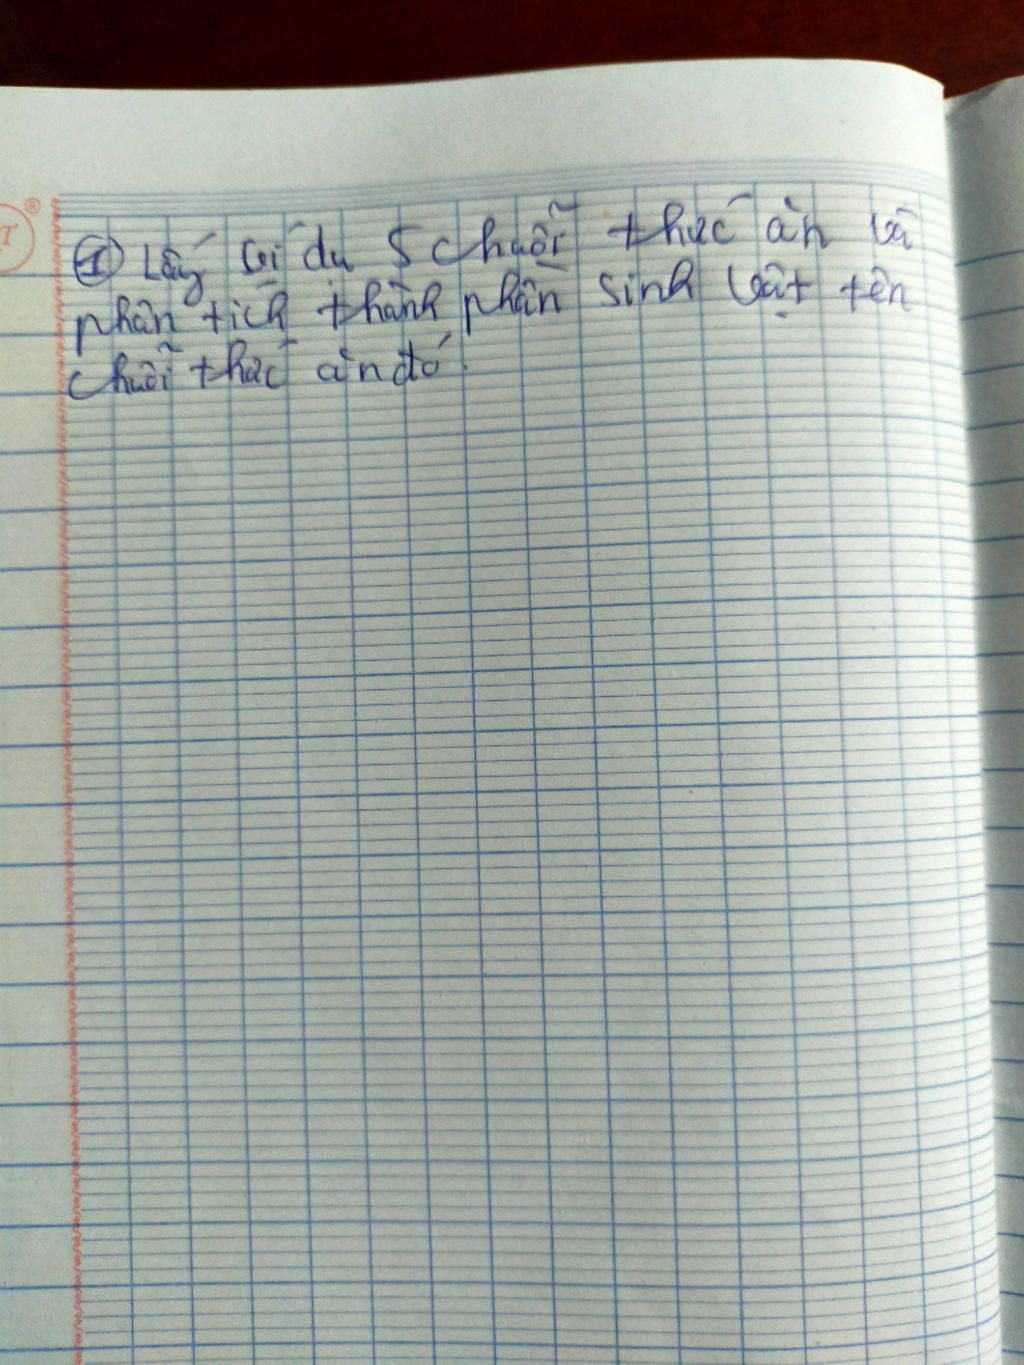 ① Lấy ví dụ 5 chuỗi thức ăn và
phân tích thành phần sinh vật tên
chuỗi thức ăn đó.